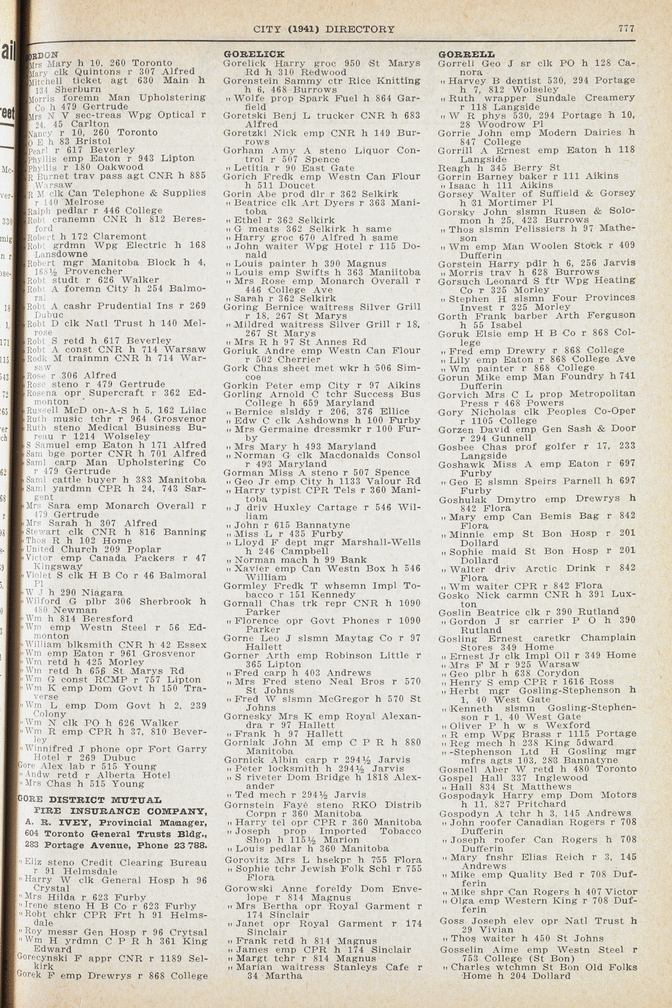 CITY (1941) DIRECTORY
777
ORDON
Mrs Mary h 10, 260 Toronto
Mary clk Quintons r 307 Alfred
Mitchell ticket agt 630 Main h
134 Sherburn
Morris foremn Man Upholstering
Co h 479 Gertrude
Mrs N V sec-treas Wpg Optical r
24, 45 Carlton
Nancy r 10, 260 Toronto
O E h 83 Bristol
Pearl r 617 Beverley
Phyllis emp Eaton r 943 Lipton
Phyllis r 180 Oakwood
R Burnet trav pass agt CNR h 885
Warsaw
R M clk Can Telephone & Supplies
r 140 Melrose
Ralph pedlar r 446 College
Robt cranemn CNR h 812 Beres-
ford
Robert h 172 Claremont
Robt grdmn Wpg Electric h 168
Lansdowne
Robert mgr Manitoba Block h 4,
168½ Provencher
Robt studt r 626 Walker
Robt A foremn City h 254 Balmo-
ral
Robt A cashr Prudential Ins r 269
Dubuc
Robt D clk Natl Trust h 140 Mel-
rose
Robt S retd h 617 Beverley
Robt A const CNR h 714 Warsaw
Rodk M trainmn CNR h 714 War-
saw
Rose r 306 Alfred
Rose steno r 479 Gertrude
Rosena opr Supercraft r 362 Ed-
monton
Russell McD on-A-S h 5, 162 Lilac
Ruth music tchr r 964 Grosvenor
Ruth steno Medical Business Bu-
reau r 1214 Wolseley
S Samuel emp Eaton h 171 Alfred
Sam bge porter CNR h 701 Alfred
Saml carp Man Upholstering Co
r 479 Gertrude
Saml cattle buyer h 383 Manitoba
Saml yardmn CPR h 24, 743 Sar-
gent
Mrs Sara emp Monarch Overall r
479 Gertrude
Mrs Sarah h 307 Alfred
Stewart clk CNR h 816 Banning
Thos R h 102 Home
United Church 209 Poplar
Victor emp Canada Packers r 47
Kingsway
Violet S clk H B Co r 46 Balmoral
Pl
W J h 290 Niagara
Wilford G plbr 306 Sherbrook h
480 Newman
Wm h 814 Beresford
Wm emp Westn Steel r 56 Ed-
monton
William blksmith CNR h 42 Essex
Wm emp Eaton r 961 Grosvenor
Wm retd h 425 Morley
Wm retd h 656 St Marys Rd
Wm G const RCMP r 757 Lipton
Wm K emp Dom Govt h 150 Tra-
verse
Wm L emp Dom Govt h 2, 239
Colony
Wm N clk PO h 626 Walker
Wm R emp CPR h 37, 810 Bever-
ley
Winnifred J phone opr Fort Garry
Hotel r 269 Dubuc
Gore Alex lab r 515 Young
" Andw retd r Alberta Hotel
" Mrs Chas h 515 Young
GORE DISTRICT MUTUAL
FIRE INSURANCE COMPANY,
A. R. IVEY, Provincial Manager,
604 Toronto General Trusts Bldg.,
283 Portage Avenue, Phone 23 788.
" Eliz steno Credit Clearing Bureau
r 91 Helmsdale
" Harry W clk General Hosp h 96
Crystal
" Mrs Hilda r 623 Furby
" Irene steno H B Co r 623 Furby
" Robt chkr CPR Frt h 91 Helms-
dale
" Roy messr Gen Hosp r 96 Crytsal
" Wm H yrdmn C P R h 361 King
Edward
Gorecynski F appr CNR r 1189 Sel-
kirk
Gorek F emp Drewrys r 868 College
GORELICK
Gorelick Harry groc 950 St Marys
Rd h 310 Redwood
Gorenstein Sammy ctr Rice Knitting
h 6, 468 Burrows
" Wolfe prop Spark Fuel h 864 Gar-
field
Goretski Benj L trucker CNR h 683
Alfred
Goretzki Nick emp CNR h 149 Bur-
rows
Gorham Amy A steno Liquor Con-
trol r 507 Spence
" Letitia r 90 East Gate
Gorich Fredk emp Westn Can Flour
h 511 Doucet
Gorin Abe prod dlr r 362 Selkirk
" Beatrice clk Art Dyers r 363 Mani-
toba
" Ethel r 362 Selkirk
" G meats 362 Selkirk h same
" Harry groc 670 Alfred h same
" John waiter Wpg Hotel r 115 Do-
nald
" Louis painter h 390 Magnus
" Louis emp Swifts h 363 Manitoba
" Mrs Rose emp Monarch Overall r
446 College Ave
" Sarah r 362 Selkirk
Goring Bernice waitress Silver Grill
r 18, 267 St Marys
" Mildred waitress Silver Grill r 18,
267 St Marys
" Mrs R h 97 St Annes Rd
Goriuk Andw emp Westn Can Flour
r 502 Cherrier
Gork Chas sheet met wkr h 506 Sim-
coe
Gorkin Peter emp City r 97 Aikins
Gorling Arnold C tchr Success Bus
College h 659 Maryland
" Bernice slsldy r 206, 376 Ellice
" Edw C clk Ashdowns h 100 Furby
" Mrs Germaine dressmkr r 100 Fur-
by
" Mrs Mary h 493 Maryland
" Norman G clk Macdonalds Consol
r 493 Maryland
Gorman Miss A steno r 507 Spence
" Geo Jr emp City h 1133 Valour Rd
" Harry typist CPR Tels r 360 Mani-
toba
" J driv Huxley Cartage r 546 Wil-
liam
" John r 615 Bannatyne
" Miss L r 435 Furby
" Lloyd F dept mgr Marshall-Wells
h 246 Campbell
" Norman mach h 99 Bank
" Xavier emp Can Westn Box h 546
William
Gormley Fredk T whsemn Impl To-
bacco r 151 Kennedy
Gornall Chas trk repr CNR h 1090
Parker
" Florence opr Govt Phones r 1090
Parker
Gorne Leo J slsmn Maytag Co r 97
Hallett
Gorner Arth emp Robinson Little r
365 Lipton
" Fred carp h 403 Andrews
" Mrs Fred steno Neal Bros r 570
St Johns
" Fred W slsmn McGregor h 570 St
Johns
Gornesky Mrs K emp Royal Alexan-
dra r 97 Hallett
" Frank h 97 Hallett
Gorniak John M emp C P R h 880
Manitoba
Gornick Albin carp r 294½ Jarvis
" Peter locksmith h 294½ Jarvis
" S riveter Dom Bridge h 1818 Alex-
ander
" Ted mech r 294½ Jarvis
Gornstein Fayé steno RKO Distrib
Corpn r 360 Manitoba
" Harry tel opr CPR r 360 Manitoba
" Joseph prop Imported Tobacco
Shop h 115½ Marion
" Louis pedlar h 360 Manitoba
Gorovitz Mrs L hsekpr h 755 Flora
" Sophie tchr Jewish Folk Schl r 755
Flora
Gorowski Anne foreldy Dom Enve-
lope r 814 Magnus
" Mrs Bertha opr Royal Garment r
174 Sinclair
" Janet opr Royal Garment r 174
Sinclair
" Frank retd h 814 Magnus
" James emp CPR h 174 Sinclair
" Margt tchr r 814 Magnus
" Marian waitress Stanleys Cafe r
34 Martha
GORRELL
Gorrell Geo J sr clk PO h 128 Ca-
nora
" Harvey B dentist 530, 294 Portage
h 7, 812 Wolseley
" Ruth wrapper Sundale Creamery
r 118 Langside
" W R phys 530, 294 Portage h 10,
28 Woodrow Pl
Gorrie John emp Modern Dairies h
847 College
Gorrill A Ernest emp Eaton h 118
Langside
Reagh h 345 Berry St
Gorrin Barney baker r 111 Aikins
" Isaac h 111 Aikins
Gorsey Walter of Suffield & Gorsey
h 31 Mortimer Pl
Gorsky John slsmn Rusen & Solo-
mon h 25, 423 Burrows
" Thos slsmn Pelissiers h 97 Mathe-
son
" Wm emp Man Woolen Stock r 409
Dufferin
Gorstein Harry pdlr h 6, 256 Jarvis
" Morris trav h 628 Burrows
Gorsuch Leonard S ftr Wpg Heating
Co r 325 Morley
" Stephen H slsmn Four Provinces
Invest r 325 Morley
Gorth Frank barber Arth Ferguson
h 55 Isabel
Goruk Elsie emp H B Co r 868 Col-
lege
" Fred emp Drewry r 868 College
" Lily emp Eaton r 868 College Ave
" Wm painter r 868 College
Gorun Mike emp Man Foundry h 741
Dufferin
Gorvich Mrs C L prop Metropolitan
Press r 468 Powers
Gory Nicholas clk Peoples Co-Oper
r 1105 College
Gorzen David emp Gen Sash & Door
r 294 Gunnell
Gosbee Chas prof golfer r 17, 233
Langside
Goshawk Miss A emp Eaton r 697
Furby
" Geo E slsmn Speirs Parnell h 697
Furby
Goshulak Dmytro emp Drewrys h
842 Flora
" Mary emp Can Bemis Bag r 842
Flora
" Minnie emp St Bon Hosp r 201
Dollard
" Sophie maid St Bon Hosp r 201
Dollard
" Walter driv Arctic Drink r 842
Flora
" Wm waiter CPR r 842 Flora
Gosko Nick carmn CNR h 391 Lux-
ton
Goslin Beatrice clk r 390 Rutland
" Gordon J sr carrier P O h 390
Rutland
Gosling Ernest caretkr Champlain
Stores 349 Home
" Ernest Jr clk Impl Oil r 349 Home
" Mrs F M r 925 Warsaw
" Geo plbr h 638 Corydon
" Henry S emp CPR r 1616 Ross
" Herbt mgr Gosling-Stephenson h
1, 40 West Gate
" Kenneth slsmn Gosling-Stephen-
son r 1, 40 West Gate
" Oliver P h w s Wexford
" R emp Wpg Brass r 1115 Portage
" Reg mech h 238 King 5dward
" -Stephenson Ltd H Gosling mgr
mfrs agts 103, 283 Bannatyne
Gosnell Aber W retd h 480 Toronto
Gospel Hall 337 Inglewood
" Hall 834 St Matthews
Gospodayk Harry emp Dom Motors
h 11, 827 Pritchard
Gospodyn A tchr h 3, 145 Andrews
" John roofer Canadian Rogers r 708
Dufferin
" Joseph roofer Can Rogers h 708
Dufferin
" Mary fnshr Elias Reich r 3, 145
Andrews
" Mike emp Quality Bed r 708 Duf-
ferin
" Mike shpr Can Rogers h 407 Victor
" Olga emp Western King r 708 Duf-
ferin
Goss Joseph elev opr Natl Trust h
29 Vivian
" Thos waiter h 450 St Johns
Gosselin Aime emp Westn Steel r
753 College (St Bon)
" Charles wtchmn St Bon Old Folks
Home h 204 Dollard